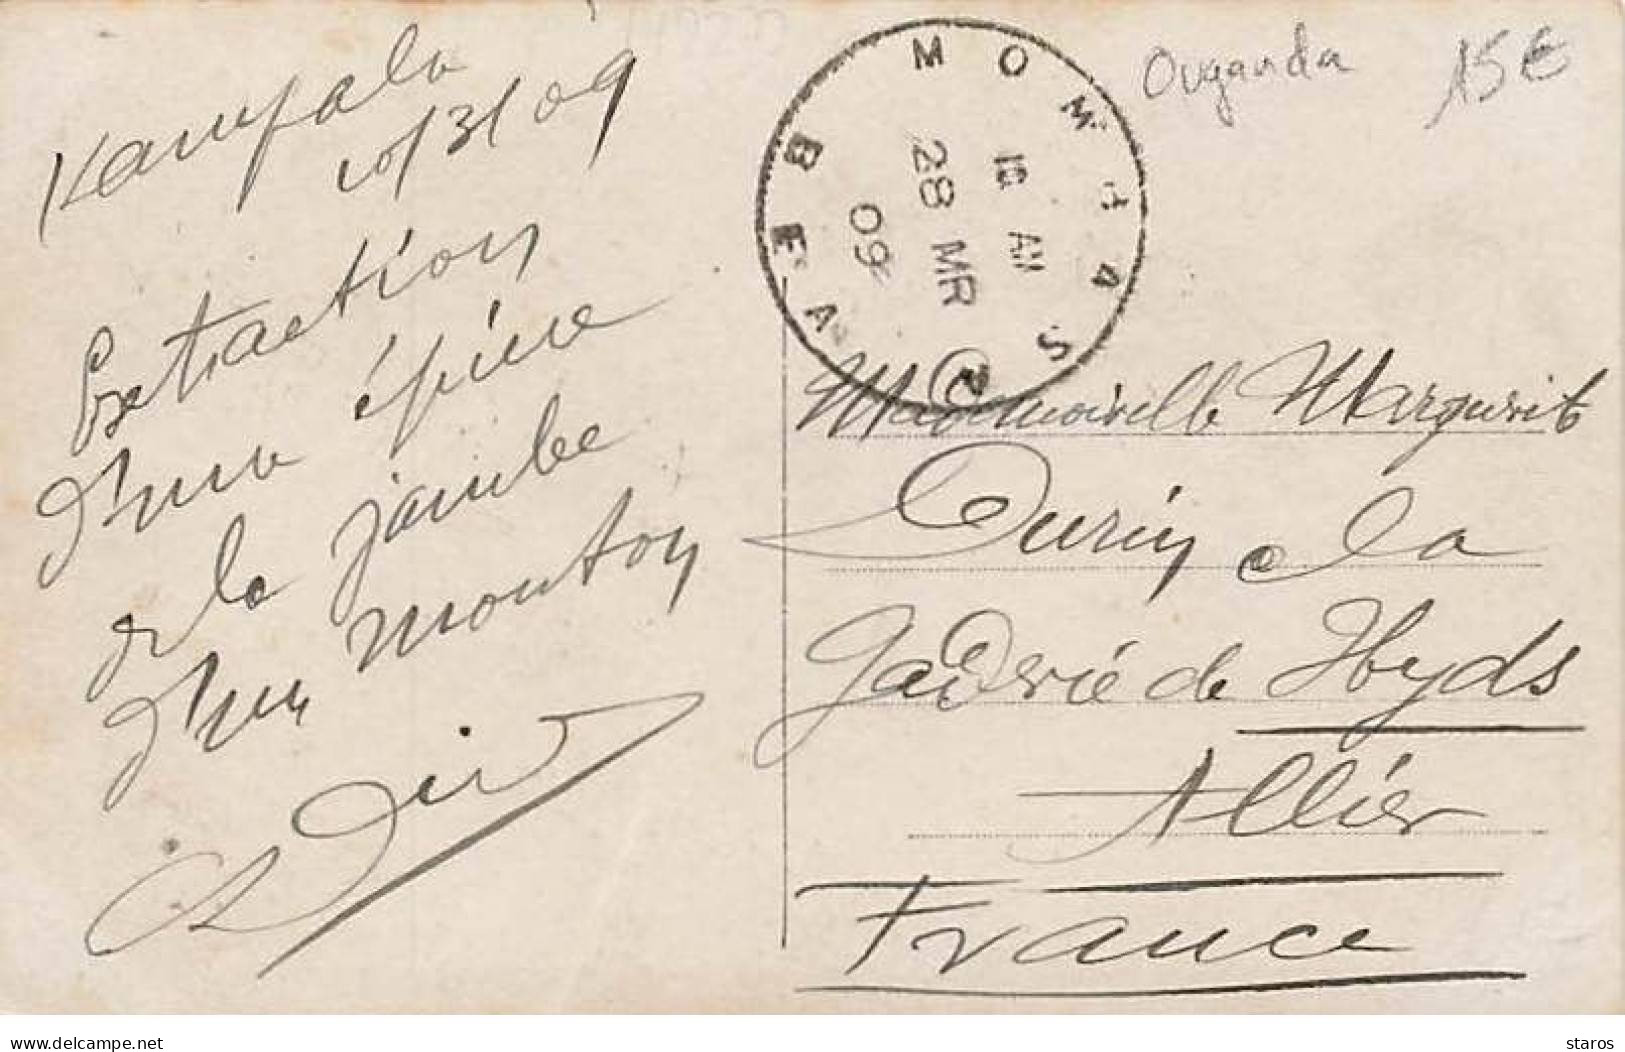 Kampala
10/3/09
Extraction
d'une épine
de la jambe
d'un mouton
MOMBASA
BEA
10 AM
28 MR
09
Ouganda 15€
Mademoiselle Marguerite
Durin à la
Gadrié de Hyds
Allier
France
www.delcampe.net
staros